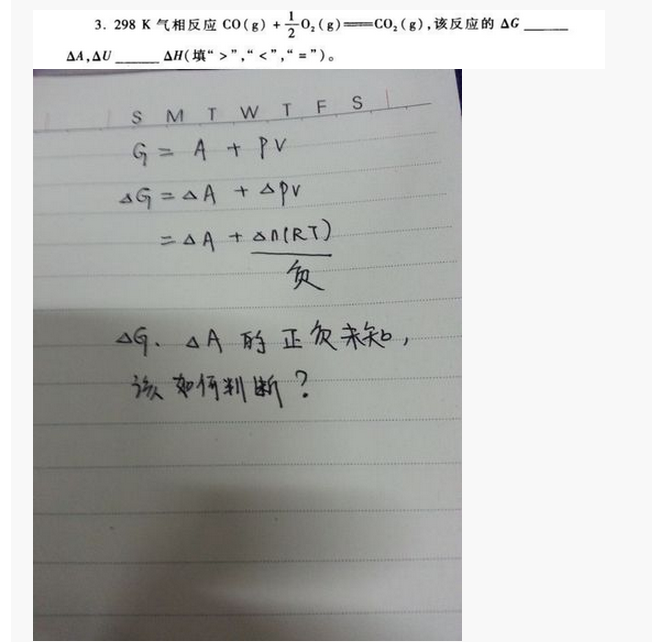 3. 298 K 气相反应 CO(g) + 1/2 O₂(g)══CO₂(g),该反应的 ΔG ______
ΔA,ΔU ______ ΔH(填“>”,“<”,“=”)。
S M T W T F S
G = A + PV
ΔG = ΔA + ΔPV
= ΔA + Δn(RT)
负
ΔG、ΔA 的正负未知,
该如何判断?